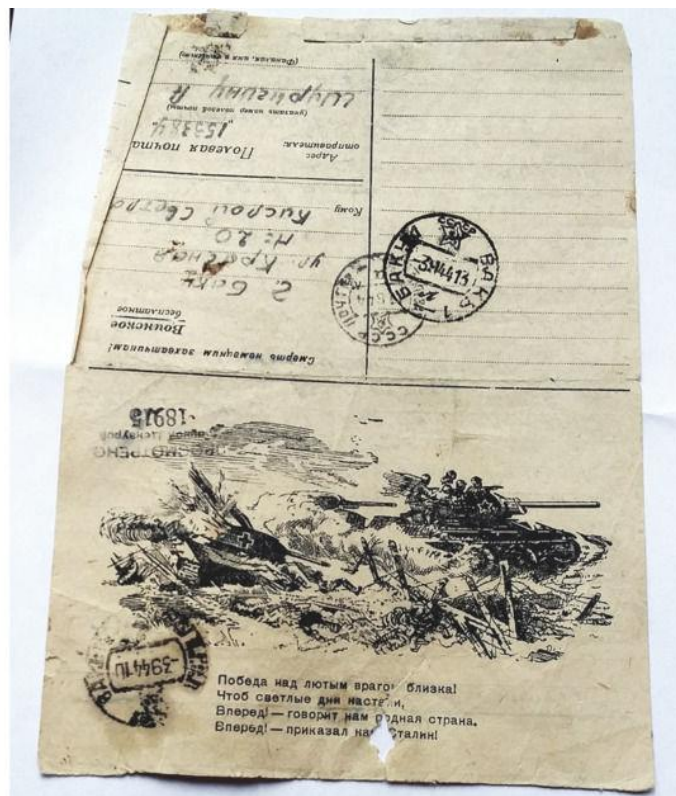 Смерть немецким захватчикам!
Воинское
бесплатное
г. Баку
ул. Красная
№ 20
Кому
Адрес
отправителя:
Полевая почта
15338Ч.
(указать номер полевой почты)
Шурыгину А
(Фамилия, имя и отчество)
СССР
БАКЫ
БАКУ
-3944.13
СССР
ПРОСМОТРЕНО
Военной Цензурой
18915
-3944.10
Победа над лютым врагом близка!
Чтоб светлые дни настали,
Вперед! — говорит нам родная страна.
Вперед! — приказал нам Сталин!